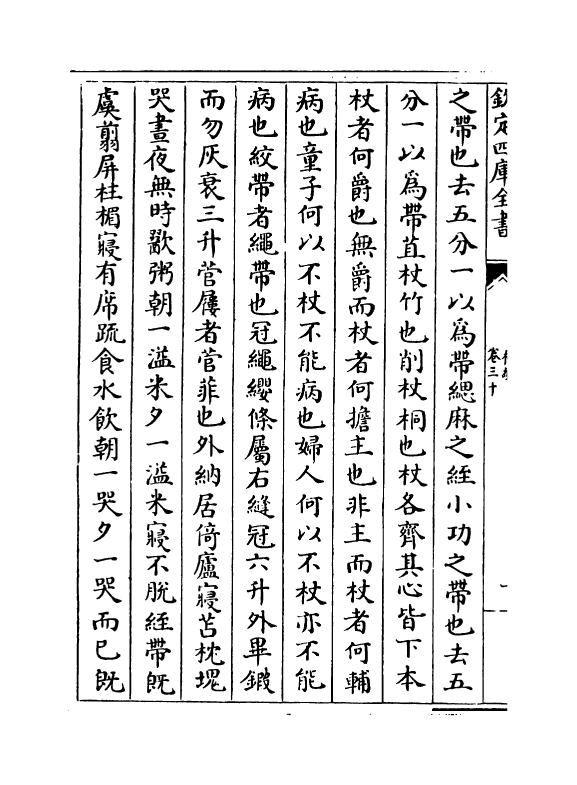 欽定四庫全書
卷三十
之帶也去五分一以爲帶緦麻之絰小功之帶也去五
分一以爲帶苴杖竹也削杖桐也杖各齊其心皆下本
杖者何爵也無爵而杖者何擔主也非主而杖者何輔
病也童子何以不杖不能病也婦人何以不杖亦不能
病也絞帶者繩帶也冠繩纓條屬右縫冠六升外畢鍛
而勿灰衰三升菅屨者菅菲也外納居倚廬寢苫枕塊
哭晝夜無時歠粥朝一溢米夕一溢米寢不脫絰帶既
虞翦屏柱楣寢有席疏食水飲朝一哭夕一哭而已既